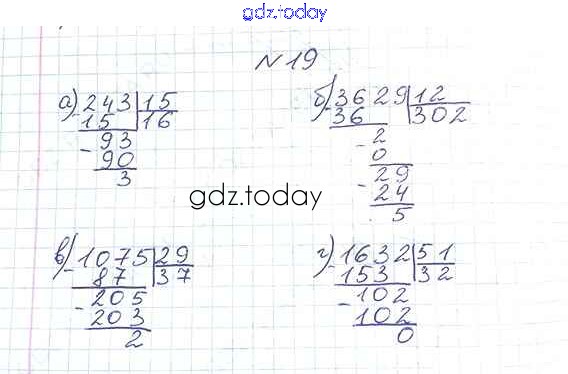 gdz.today
№19
а) 243 | 15
15 | 16
- 93
90
3
б) 3629 | 12
- 36 | 302
- 2
0
- 29
24
5
gdz.today
в) 1075 | 29
- 87 | 37
- 205
203
2
г) 1632 | 51
- 153 | 32
- 102
102
0